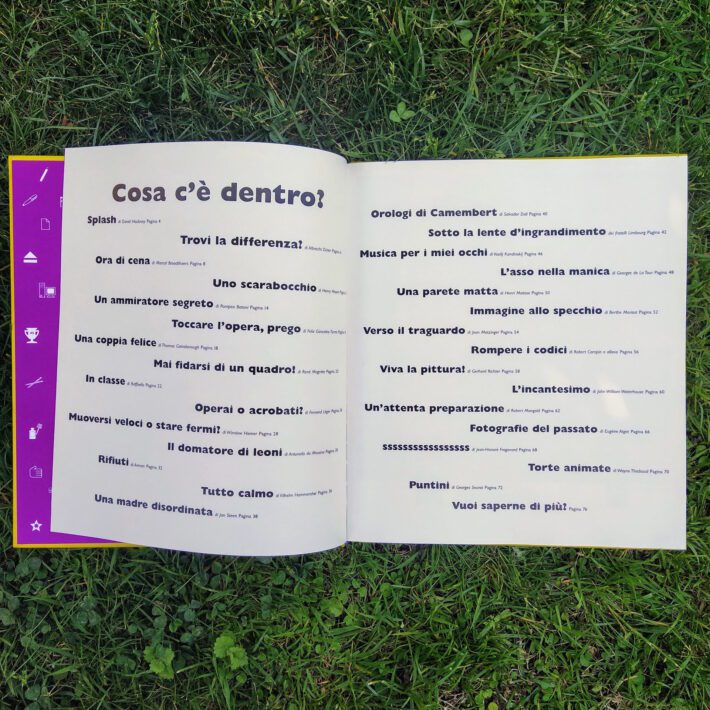 Cosa c'è dentro?
Splash di David Hockney Pagina 4
Trovi la differenza? di Albrecht Dürer Pagina 6
Ora di cena di Marcel Broodthaers Pagina 8
Uno scarabocchio di Henry Moore Pagina
Un ammiratore segreto di Pompeo Batoni Pagina 14
Toccare l'opera, prego di Félix González-Torres Pagina
Una coppia felice di Thomas Gainsborough Pagina 18
Mai fidarsi di un quadro! di René Magritte Pagina 20
In classe di Raffaello Pagina 22
Operai o acrobati? di Fernand Léger Pagina
Muoversi veloci o stare fermi? di Winslow Homer Pagina 28
Il domatore di leoni di Antonello da Messina Pagina
Rifiuti di Arman Pagina 32
Tutto calmo di Vilhelm Hammershøi Pagina 36
Una madre disordinata di Jan Steen Pagina 38
Orologi di Camembert di Salvador Dalí Pagina 40
Sotto la lente d'ingrandimento dei fratelli Limbourg Pagina 42
Musica per i miei occhi di Vasilij Kandinskij Pagina 46
L'asso nella manica di Georges de La Tour Pagina 48
Una parete matta di Henri Matisse Pagina 50
Immagine allo specchio di Berthe Morisot Pagina 52
Verso il traguardo di Jean Metzinger Pagina 54
Rompere i codici di Robert Campin o allievo Pagina 56
Viva la pittura! di Gerhard Richter Pagina 58
L'incantesimo di John William Waterhouse Pagina 60
Un'attenta preparazione di Robert Mangold Pagina 62
Fotografie del passato di Eugène Atget Pagina 66
sssssssssssssssss di Jean-Honoré Fragonard Pagina 68
Torte animate di Wayne Thiebaud Pagina 70
Puntini di Georges Seurat Pagina 72
Vuoi saperne di più? Pagina 76